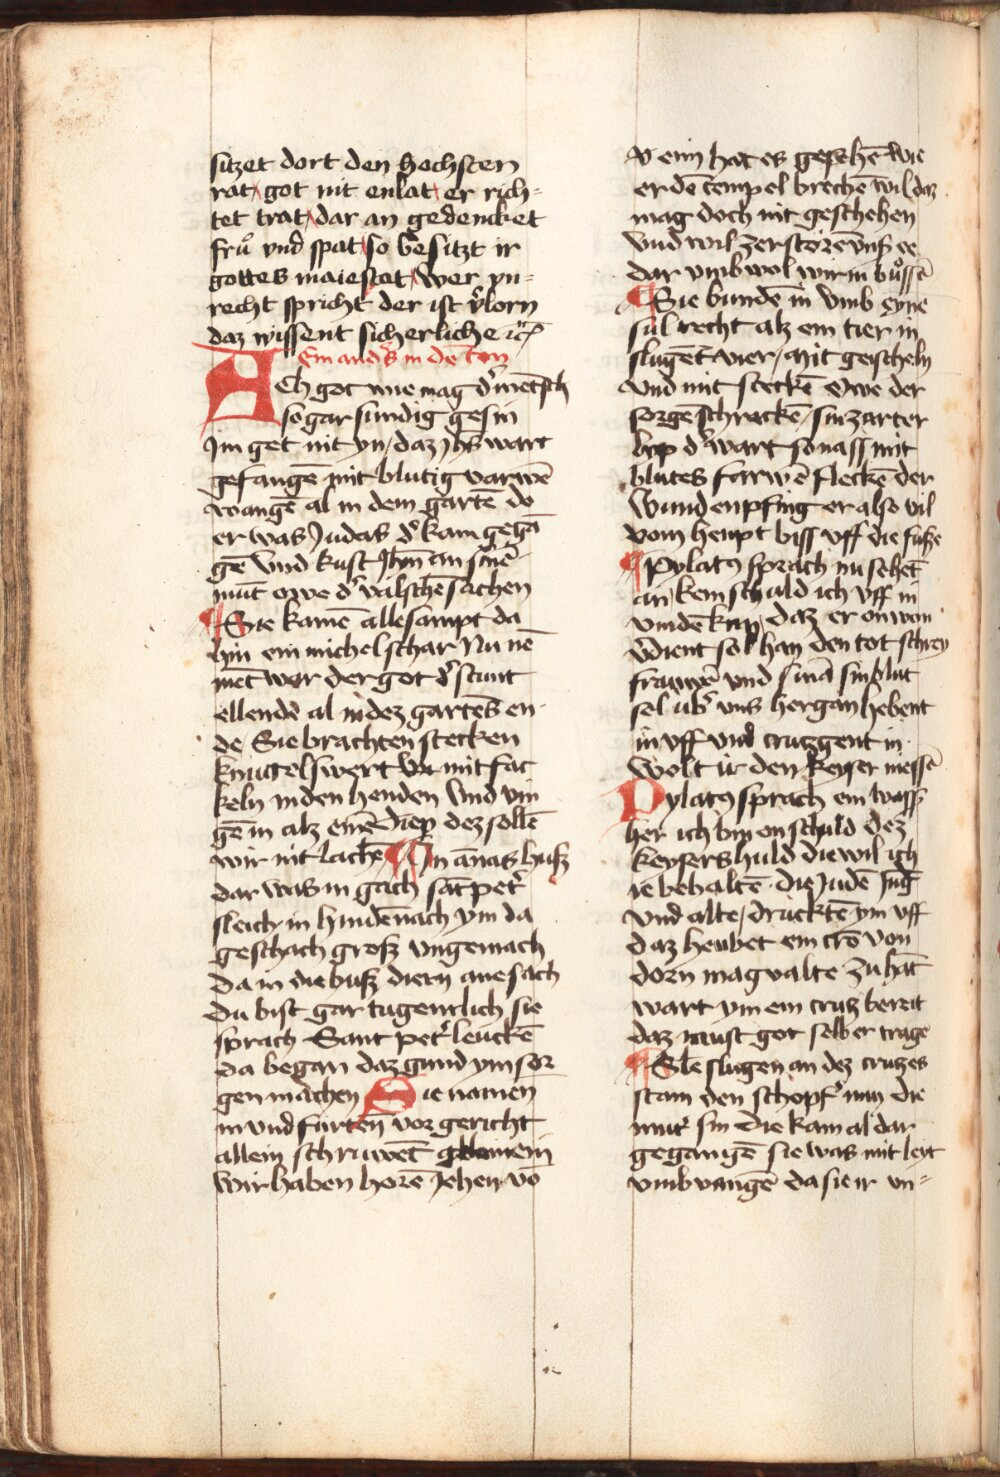 sitzet dort den hochsten
rat got nit enlat er rich-
tet trat dar an gedencket
fruͦ vnd spat so besitzt ir
gottes maiestet wer vn-
recht spricht der ist v̓lorn
daz wissent sicherliche ⁊c̄
Ein and̓s in de ton
Ach got wie mag d̓ mensch
so gar sundig gesin
Im get nit yn daz Jhs wart
gefangē mit blutig varwē
wangē al in dem gartē do
er was Judas d̓ kam gegā
gē vnd kust Jhm an sinē
munt owe d̓ valschē sachen
Sie kamē alle sampt da
hin ein michel schar Nu nē
met war der got v̓stunt
ellende al in dez gartēs en
de Sie brachten stecken
knuttel swert vn mit fac
keln in den henden vnd vin
gē in alz einē diep dez sollē
wir nit lachē In annas husz
dar was in gach sāt pet̓
sleich in hindē nach ym da
geschach grosz vngemach
da in die busz diern anesach
du bist gar tugentlich sie
sprach Sant pet̓ leuckē
da began daz gund ym sor
gen machen Sie namen
in vnd furtēn vor gericht
allein schruwēt gemein
wir haben horē Jehen vō
v einn hat es gesehē wie
er dē tempel brechē wil daz
mag doch nit geschehen
vnd wil zerstorē vnsz ee
dar vmb wol wir in buͦssē
Sie bundē in vmb eyne
sul recht alz ein tier in
slugēt vier mit geischeln
vnd mit steckē owe der
sorgē schrecken sin zarter
lip d̓ wart so nass mit
blutes farwē fleckē der
wunden pfing er also vil
vom heupt biss vff die fusze
Pylatus sprach nu sehēt
an kein schuld ich vff in
vinden kan daz er on won
v̓dient sol han den tot schrey
frauwē vnd sinā sin blut
sol ub̓ vns hergan hebent
in vff vnd crutzgent in
wolt ir den keyser niessē
Pylatus sprach ein wassz
her ich bin on schuld dez
keysers huld die wil ich
ie behaltē die Judē Jung
vnd alte drucktē ym vff
daz heubet ein cron von
dorn magvalte zu hāt
wart ym ein crutz bereit
daz must got selber trage
Sie slugen an dez crutzes
stam den schopf̓ nun die
mut̓ sin die kam al dar
gegangē sie was mit leyt
vmbvangē da sie ir vn-